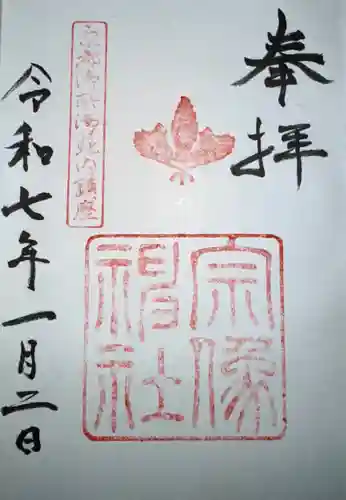 奉拝
宗像
神社
令和七年一月二日